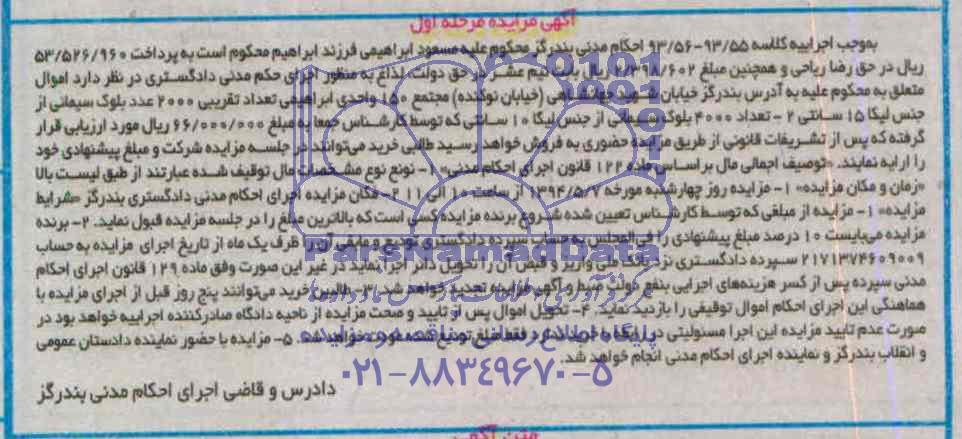 آگهی مزایده مرحله اول
بموجب اجراییه کلاسه ۹۳/۵۵-۹۳/۵۶ احکام مدنی بندرگز محکوم علیه مسعود ابراهیمی فرزند ابراهیم محکوم است به پرداخت ۵۳/۵۲۶/۹۶۰
ریال در حق رضا ریاحی و همچنین مبلغ ۲/۳۹۸/۶۰۲ ریال بابت نیم عشر در حق دولت، لذاع به منظور اجرای حکم مدنی دادگستری در نظر دارد اموال
متعلق به محکوم علیه به آدرس بندرگز خیابان شهید جهانشاهی (خیابان نوکنده) مجتمع ۱۵۰ واحدی ابراهیمی تعداد تقریبی ۲۰۰۰ عدد بلوک سیمانی از
جنس لیکا ۱۵ سانتی ۲- تعداد ۴۰۰۰ بلوک سیمانی از جنس لیکا ۱۰ سانتی که توسط کارشناس جمعا به مبلغ ۶۶/۰۰۰/۰۰۰ ریال مورد ارزیابی قرار
گرفته که پس از تشریفات قانونی از طریق مزایده حضوری به فروش خواهد رسید طالبی خرید می‌توانند در جلسه مزایده شرکت و مبلغ پیشنهادی خود
را ارایه نمایند. «توصیف اجمالی مال بر اساس ماده ۱۲۲ قانون اجرای احکام مدنی» ۱- نوع نوع مشخصات مال توقیف شده عبارتند از طبق لیست بالا
«زمان و مکان مزایده» ۱- مزایده روز چهارشنبه مورخه ۱۳۹۴/۵/۷ از ساعت ۱۰ الی ۱۱ ۲- مکان مزایده اجرای احکام مدنی دادگستری بندرگز «شرایط
مزایده» ۱- مزایده از مبلغی که توسط کارشناس تعیین شده شروع برنده مزایده کسی است که بالاترین مبلغ را در جلسه مزایده قبول نماید. ۲- برنده
مزایده می‌بایست ۱۰ درصد مبلغ پیشنهادی را فی‌المجلس به حساب سپرده دادگستری تودیع و مابقی آن را ظرف یک ماه از تاریخ اجرای مزایده به حساب
۲۱۷۱۳۷۴۶۰۹۰۰۹ سپرده دادگستری نزد بانک ملی واریز و قبض آن را تحویل دائر اجرا نماید در غیر این صورت وفق ماده ۱۲۹ قانون اجرای احکام
مدنی سپرده پس از کسر هزینه‌های اجرایی بنفع دولت ضبط و آگهی مزایده تجدید خواهد شد. ۳- طالبین خرید می‌توانند پنج روز قبل از اجرای مزایده با
هماهنگی این اجرای احکام اموال توقیفی را بازدید نماید. ۴- تحویل اموال پس از تایید و صحت مزایده از ناحیه دادگاه صادرکننده اجراییه خواهد بود در
صورت عدم تایید مزایده این اجرا مسئولیتی در فقط مبلغ تودیع شده خواهد شد. ۵- مزایده با حضور نماینده دادستان عمومی
و انقلاب بندرگز و نماینده اجرای احکام مدنی انجام خواهد شد.
دادرس و قاضی اجرای احکام مدنی بندرگز
ParsNamadData
پایگاه اطلاع رسانی مناقصه و مزایده
۰۲۱-۸۸۳۴۹۶۷۰-۵
متن آگهی